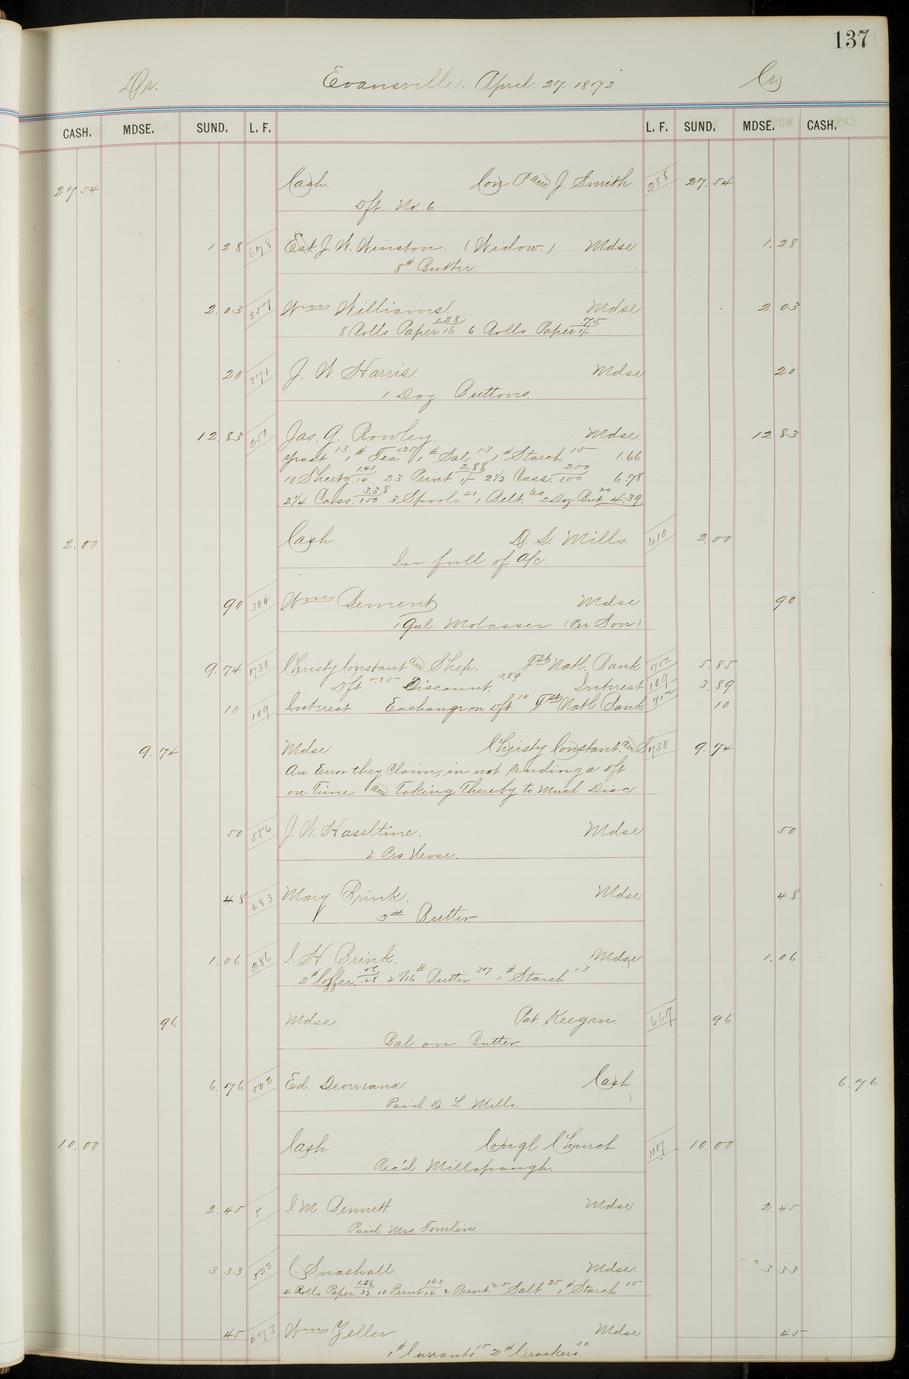 137
Dr. Evansville. April. 27. 1873. Cr
CASH. MDSE. SUND. L. F. L. F. SUND. MDSE. CASH.
27 54 Cash J. Smith 288 27.54
Dft. No. 6
1.28 678 Est. J. W. Winston. (Widow.) Mdse 1.28
8# Butter
2.03 Wms Williams Mdse 2.03
8 Rolls Paper 6 Rolls Paper
20 371 J. W. Harris Mdse 20
1 Doz Buttons
12.83 Jas. G. Rowley. Mdse 12.83
Yeast 13 1# Tea 125 1# Sal 13 1# Starch 15 1.66
10 Sheetg 23 Print 2.88 2 1/2 Cass. 2.50 6.78
2 1/4 Cass. 3.38 3 Spools 21 1 Belt. 2 Doz But 20 4.39
2.00 Cash D. L. Mills. 610 2.00
In full of a/c
90 304 Wms Bement Mdse 90
1 Gal Molasses (Per Son)
9.74 730 Christy Constant and Shep. Natl. Bank 5.85
Dft 585 Discount 389 Interest 109 3.89
10 109 Interest Exchange on Dft 10 Natl Bank 10
9.74 Mdse Christy Constant and S 730 9.74
An Error they Claim, in not sending a dft
on Time and Taking Thereby to Much Disc.
50 556 J. W. Haseltine. Mdse 50
2 Prs Hose.
48 683 Mary Brink. Mdse 48
3# Butter
1.06 286 C H. Brink. Mdse 1.06
2# Coffee 2 7/16# Butter 37 1# Starch 13
96 Mdse Pat Keegan 669 96
Bal on Butter
6.76 502 Ed. Devereaux Cash 6.76
Paid D. L. Mills.
10.00 Cash Congl Church 117 10.00
Rec'd Millspaugh.
2.45 C M. Bennett Mdse 2.45
Paid Mrs Tomlin
3.33 522 C. Snashall Mdse. 3.33
4 Rolls Paper 10 Print 2 Print 25 Salt 25 1# Starch 15
45 673 Wms Zeller. Mdse 45
1# Currants 15 2# Crackers 30